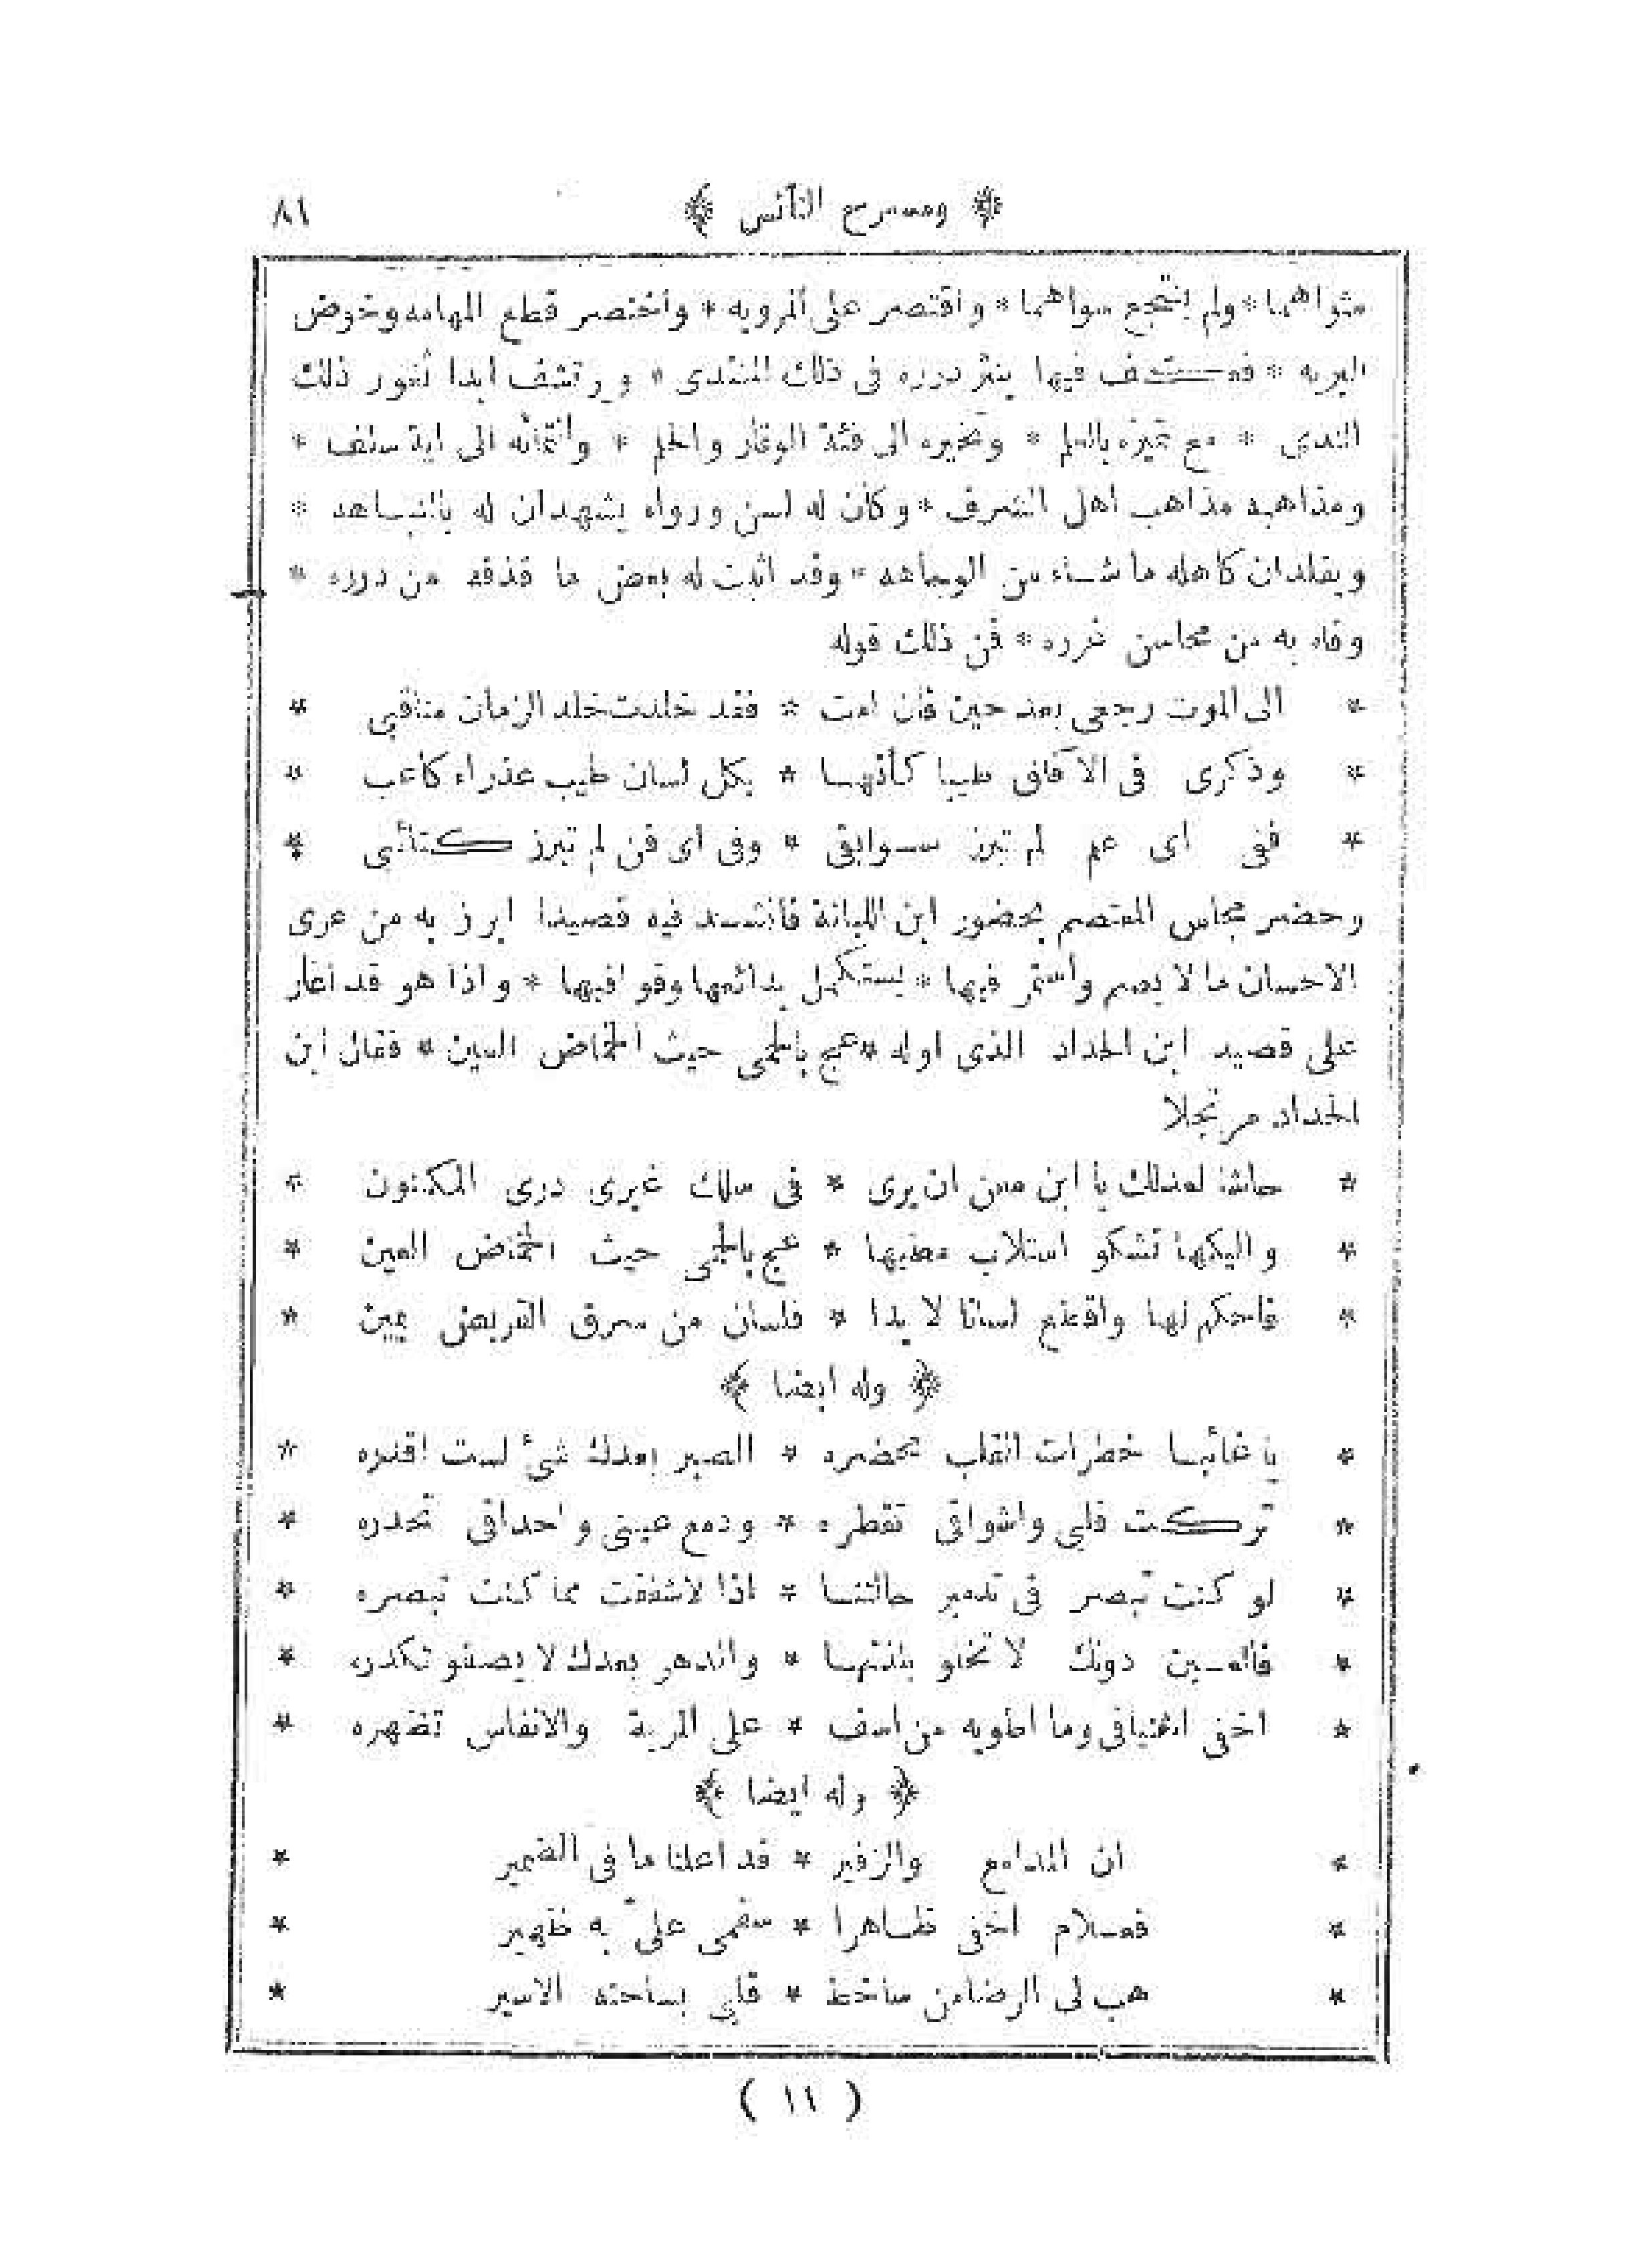 ﴿ ومسرح التآنس ﴾ ٨١
مثواهما * ولم ينتجع سواهما * واقتصر على المرويه * واختصر قطع المهامه وخوض
البريه * فعكف فيها ينثر درره فى ذلك المنتدى * ورتشف ابدا ثغور ذلك
الندى * مع تميزه بالعلم * وتحيزه الى فئة الوقار والحلم * وانتمائه الى اية سلف *
ومذاهبه مذاهب اهل الشرف * وكان له لسن ورواء يشهدان له بالنباهه *
ويقلدان كاهله ما شاء من الوجاهه * وقد اثبت له بعض ما قذفه من درره *
وفاه به من محاسن غرره * فمن ذلك قوله
* الى الموت رجعى بعد حين فان امت * فقد خلدت خلد الزمان مناقبى *
* وذكرى فى الآفاق طيبا كأنها * بكل لسان طيب عذراء كاعب *
* ففى اى علم لم تبرز سوابقى * وفى اى فن لم تبرز كتائبى *
وحضر مجلس المعتصم بحضور ابن اللبانة فانشد فيه قصيدا ابرز به من عرى
الاحسان ما لا يصم واستمر فيها * يستكمل بدائعها وقوافيها * واذا هو قد اغار
على قصيد ابن الحداد الذى اوله * عج بالحمى حيث الخماض العين * فقال ابن
الحداد مرتجلا
* حاشا لعدلك يا ابن معن ان يرى * فى سلك غيرى درى المكنون *
* واليكها تشكو استلاب مطيها * عج بالحمى حيث الخماض العين *
* فاحكم لها واقطع لسانا لا يدا * فلسان من سرق القريض يمين *
﴿ وله ايضا ﴾
* يا غائبا خطرات القلب محضره * الصبر بعدك شئ لست اقدره *
* تركت قلبى واشواقى تفطره * ودمع عينى واحداقى تحدره *
* لو كنت تبصر فى تدمير حالتنا * اذا لاشفقت مما كنت تبصره *
* فالعين دونك لا تخلو بلذتها * والدهر بعدك لا يصفو تكدره *
* اخفى اشتياقى وما اطويه من اسف * على المرية والانفاس تظهره *
﴿ وله ايضا ﴾
* ان المدامع والزفير * قد اعلنا ما فى الضمير *
* فعلام اخفى ظاهرا * سقمى علىّ به ظهير *
* هب لى الرضا من ساخط * قلبى بساحته الاسير *
( ١١ )